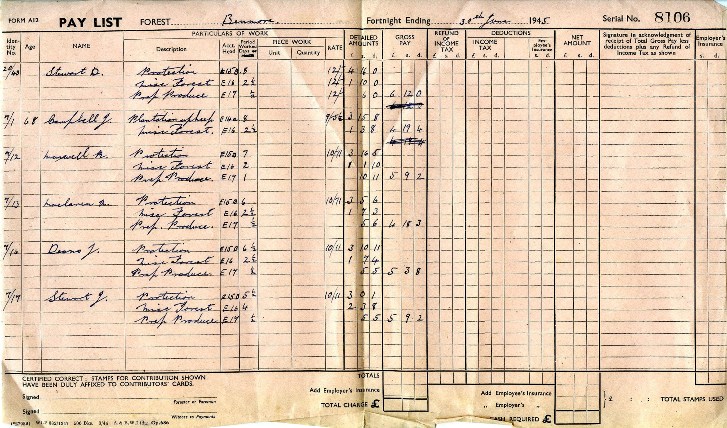 FORM A12 PAY LIST FOREST Benmore Fortnight Ending 30th June 1945 Serial No. 8106
PARTICULARS OF WORK DEDUCTIONS
Identity No. Age NAME Description Acct. Head Period Worked Days or PIECE WORK Unit Quantity RATE DETAILED AMOUNTS GROSS PAY REFUND OF INCOME TAX INCOME TAX Employee's Insurance NET AMOUNT Signature in acknowledgment of receipt of Total Gross Pay less deductions plus any Refund of Income Tax as shown Employer's Insurance
£ s. d. £ s. d. £ s. d. £ s. d. s. d. £ s. d. s. d.
Stewart D. Protection E15D 8 12/- 4 16 0
Misc Forest E16 2½ 12/- 1 10 0
Prep Produce E17 ½ 12/- 6 0 6 12 0
7/1 68 Campbell J. Plantation upkeep 8 3 15 8
Misc Forest. E16 2½ 1 3 8 4 19 4
7/12 Maxwell Protection E15D 7 10/11 3 16 5
Misc Forest E16 2 1 1 10
Prep Produce. E17 1 10 11 5 9 2
7/13 Maclaren Protection E15D 6 10/11 3 5 6
Misc Forest E16 2½ 1 7 3
Prep. Produce. E17 ½ 5 6 4 18 3
7/16 Deans J. Protection E15D 6½ 10/11 3 10 11
Misc Forest E16 2½ 1 7 4
Prep Produce E17 ½ 5 5 5 3 8
7/17 Stewart J. Protection E15D 5½ 10/11 3 0 1
Misc Forest E16 4 2 3 8
Prep Produce E17 ½ 5 5 5 9 2
CERTIFIED CORRECT: STAMPS FOR CONTRIBUTION SHOWN
HAVE BEEN DULY AFFIXED TO CONTRIBUTORS' CARDS.
TOTALS
Signed Forester or Foreman
Add Employer's Insurance Add Employee's Insurance
TOTAL CHARGE £ „ Employer's „ £ : : TOTAL STAMPS USED
Signed Witness to Payments
CASH REQUIRED £